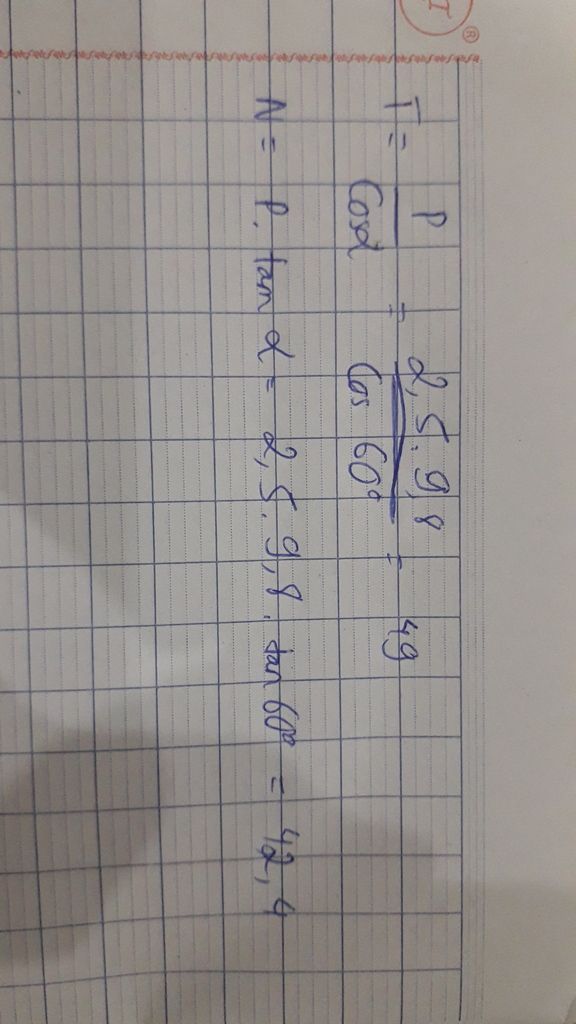 T = P / Cosα = 2,5.9,8 / Cos 60° = 49
N = P. tan α = 2,5.9,8. tan 60° = 42,4